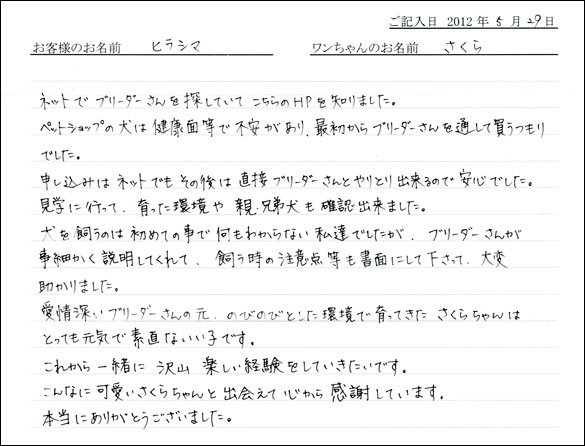 ご記入日 2012年 5月 29日
お客様のお名前 ヒラシマ ワンちゃんのお名前 さくら
ネットで ブリーダーさんを探していて こちらのHPを知りました。
ペットショップの犬は健康面等で不安があり、最初からブリーダーさんを通して買うつもり
でした。
申し込みは ネットでも その後は 直接ブリーダーさんとやりとり出来るので 安心でした。
見学に行って、育った環境や 親・兄弟犬も 確認出来ました。
犬を飼うのは 初めての事で 何もわからない 私達でしたが、ブリーダーさんが
事細かく 説明してくれて、飼う時の注意点等も書面にして下さって、大変
助かりました。
愛情深い ブリーダーさんの元、のびのびとした環境で育ってきた さくらちゃんは
とっても元気で素直ないい子です。
これから 一緒に 沢山 楽しい経験をしていきたいです。
こんなに可愛いさくらちゃんと出会えて心から 感謝しています。
本当にありがとうございました。